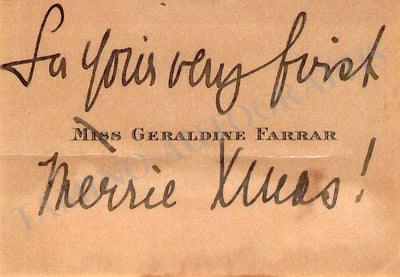 For your very first
MISS GERALDINE FARRAR
Merrie Xmas!
TAMINO AUTOGRAPHS